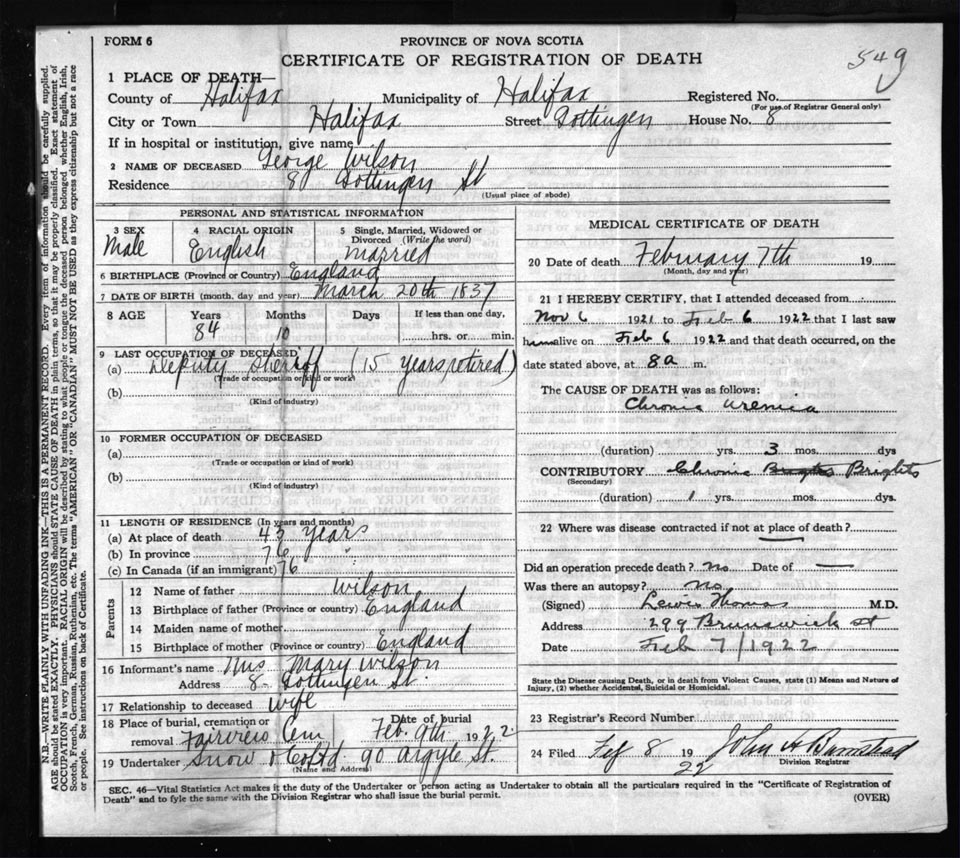 FORM 6
PROVINCE OF NOVA SCOTIA
549
CERTIFICATE OF REGISTRATION OF DEATH
1 PLACE OF DEATH—
County of Halifax Municipality of Halifax Registered No.
(For use of Registrar General only)
City or Town Halifax Street Gottingen House No. 8
If in hospital or institution, give name
2 NAME OF DECEASED George Wilson
Residence 8 Gottingen St
(Usual place of abode)
PERSONAL AND STATISTICAL INFORMATION
3 SEX Male
4 RACIAL ORIGIN English
5 Single, Married, Widowed or Divorced (Write the word) married
6 BIRTHPLACE (Province or Country) England
7 DATE OF BIRTH (month, day and year) March 20th 1837
8 AGE Years Months Days If less than one day,
84 10 hrs. or min.
9 LAST OCCUPATION OF DECEASED
(a) Deputy Sheriff (15 years retired)
(Trade or occupation or kind of work)
(b)
(Kind of industry)
10 FORMER OCCUPATION OF DECEASED
(a)
(Trade or occupation or kind of work)
(b)
(Kind of industry)
11 LENGTH OF RESIDENCE (In years and months)
(a) At place of death 43 years
(b) In province 76 "
(c) In Canada (if an immigrant) 76
Parents
12 Name of father Wilson
13 Birthplace of father (Province or country) England
14 Maiden name of mother
15 Birthplace of mother (Province or country) England
16 Informant's name Mrs Mary Wilson
Address 8 Gottingen St.
17 Relationship to deceased wife
18 Place of burial, cremation or removal Fairview Cem Date of burial Feb. 9th 1922
19 Undertaker Snow & Co Ltd 90 Argyle St.
(Name and Address)
MEDICAL CERTIFICATE OF DEATH
20 Date of death February 7th 19
(Month, day and year)
21 I HEREBY CERTIFY, that I attended deceased from
Nov 6 1921 to Feb 6 1922 that I last saw
him alive on Feb 6 1922 and that death occurred, on the
date stated above, at 8 a m.
The CAUSE OF DEATH was as follows:
Chronic uremia
(duration) yrs. 3 mos. dys
CONTRIBUTORY Chronic Brights
(Secondary)
(duration) 1 yrs. mos. dys.
22 Where was disease contracted if not at place of death? —
Did an operation precede death? No Date of —
Was there an autopsy? No
(Signed) Lewis Thomas M.D.
Address 299 Brunswick st
Date Feb 7/1922
State the Disease causing Death, or in death from Violent Causes, state (1) Means and Nature of
Injury, (2) whether Accidental, Suicidal or Homicidal.
23 Registrar's Record Number
24 Filed Feb 8 1922 John A Barnstead
Division Registrar
SEC. 46—Vital Statistics Act makes it the duty of the Undertaker or person acting as Undertaker to obtain all the particulars required in the "Certificate of Registration of
Death" and to fyle the same with the Division Registrar who shall issue the burial permit.
(OVER)
N.B.—WRITE PLAINLY WITH UNFADING INK—THIS IS A PERMANENT RECORD. Every item of information should be carefully supplied.
AGE should be stated EXACTLY. PHYSICIANS should STATE CAUSE OF DEATH in plain terms, so that it may be properly classified. Exact statement of
OCCUPATION is very important. RACIAL ORIGIN will be described by stating to what people or tongue the deceased person belonged whether English, Irish,
Scotch, French, German, Russian, Ruthenian, etc. The terms "AMERICAN" OR "CANADIAN" MUST NOT BE USED as they express citizenship but not a race
or people. See instructions on back of Certificate.